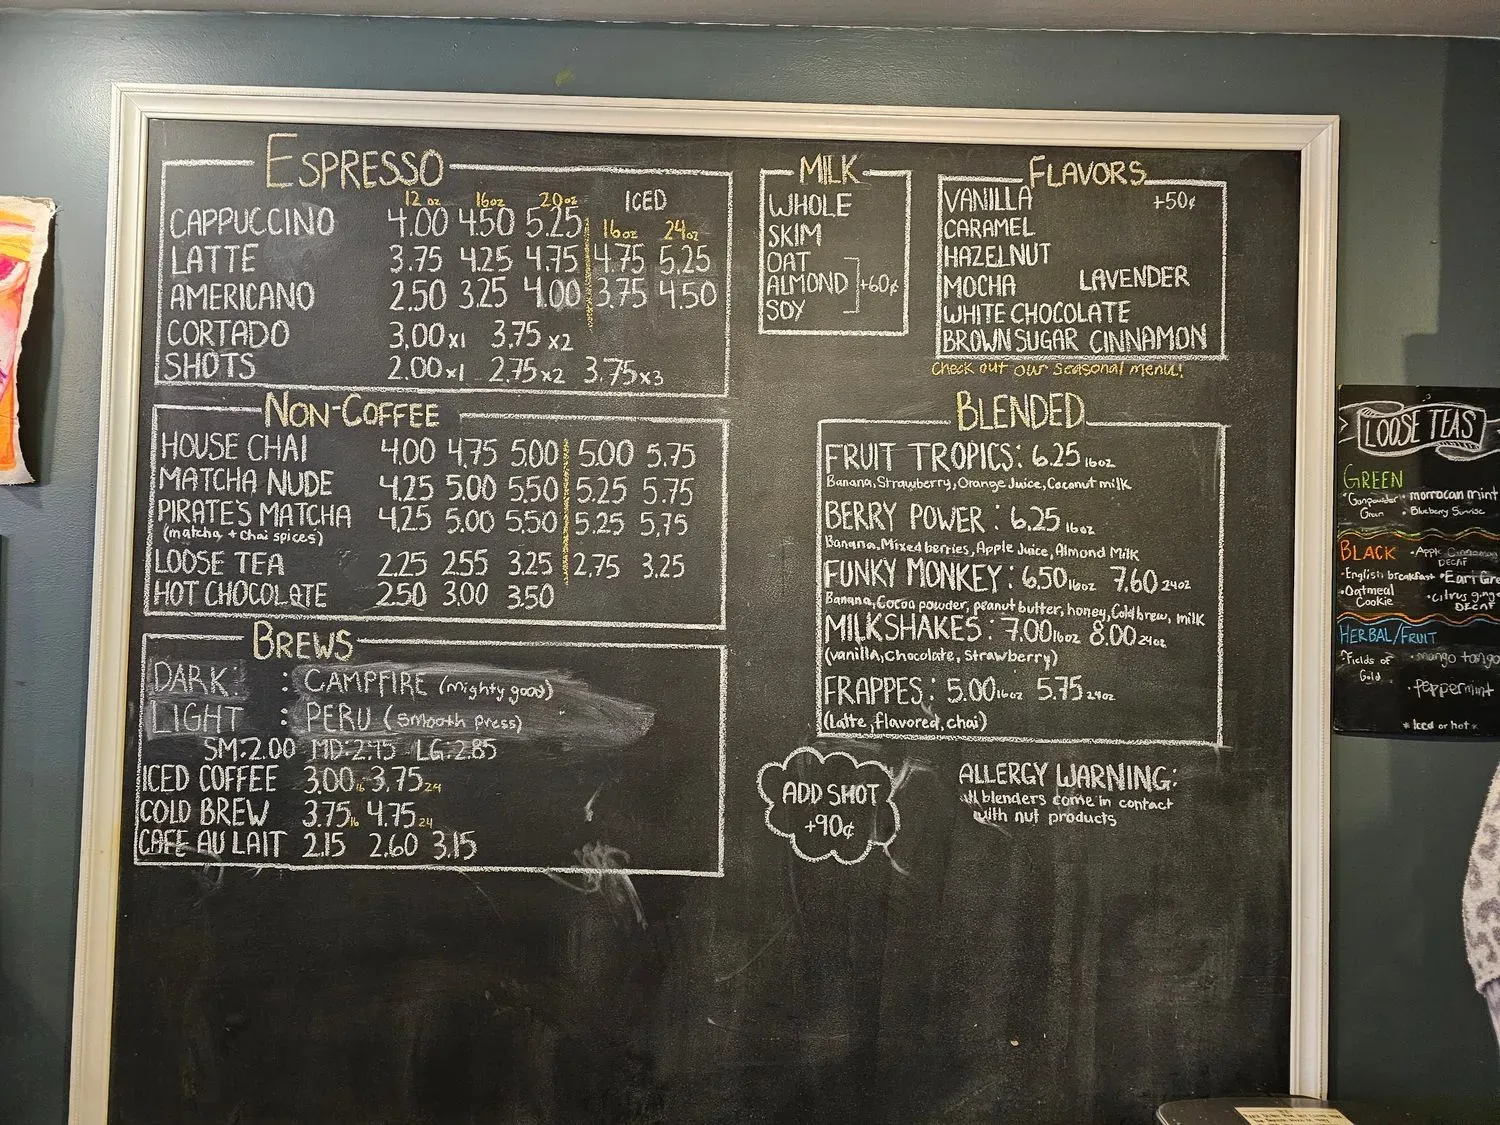 ESPRESSO
12 oz 16oz 20oz ICED
CAPPUCCINO 4.00 4.50 5.25 16oz 24oz
LATTE 3.75 4.25 4.75 4.75 5.25
AMERICANO 2.50 3.25 4.00 3.75 4.50
CORTADO 3.00 x1 3.75 x2
SHOTS 2.00 x1 2.75 x2 3.75 x3
NON-COFFEE
HOUSE CHAI 4.00 4.75 5.00 5.00 5.75
MATCHA NUDE 4.25 5.00 5.50 5.25 5.75
PIRATE'S MATCHA 4.25 5.00 5.50 5.25 5.75
(matcha + chai spices)
LOOSE TEA 2.25 2.55 3.25 2.75 3.25
HOT CHOCOLATE 2.50 3.00 3.50
BREWS
DARK: : CAMPFIRE (mighty good)
LIGHT : PERU (Smooth Press)
SM:2.00 MD:2.45 LG:2.85
ICED COFFEE 3.00 16 3.75 24
COLD BREW 3.75 16 4.75 24
CAFE AU LAIT 2.15 2.60 3.15
MILK
WHOLE
SKIM
OAT
ALMOND +60¢
SOY
FLAVORS
VANILLA +50¢
CARAMEL
HAZELNUT
MOCHA LAVENDER
WHITE CHOCOLATE
BROWN SUGAR CINNAMON
Check out our Seasonal menu!
BLENDED
FRUIT TROPICS: 6.25 16oz
Banana, Strawberry, Orange Juice, Coconut milk
BERRY POWER: 6.25 16oz
Banana, Mixed berries, Apple Juice, Almond Milk
FUNKY MONKEY: 6.50 16oz 7.60 24oz
Banana, Cocoa powder, peanut butter, honey, Cold brew, milk
MILKSHAKES: 7.00 16oz 8.00 24oz
(vanilla, chocolate, Strawberry)
FRAPPES: 5.00 16oz 5.75 24oz
(Latte, flavored, chai)
ADD SHOT
+90¢
ALLERGY WARNING:
All blenders come in contact
with nut products
LOOSE TEAS
GREEN
• Gunpowder • morrocan mint
Green • Blueberry Sunrise
BLACK • Apple Cinnamon
DECAF
• English breakfast • Earl Gre
• Oatmeal • Citrus ging
Cookie DECAF
HERBAL/FRUIT
• Fields of • mango tango
Gold
• peppermint
* Iced or hot *